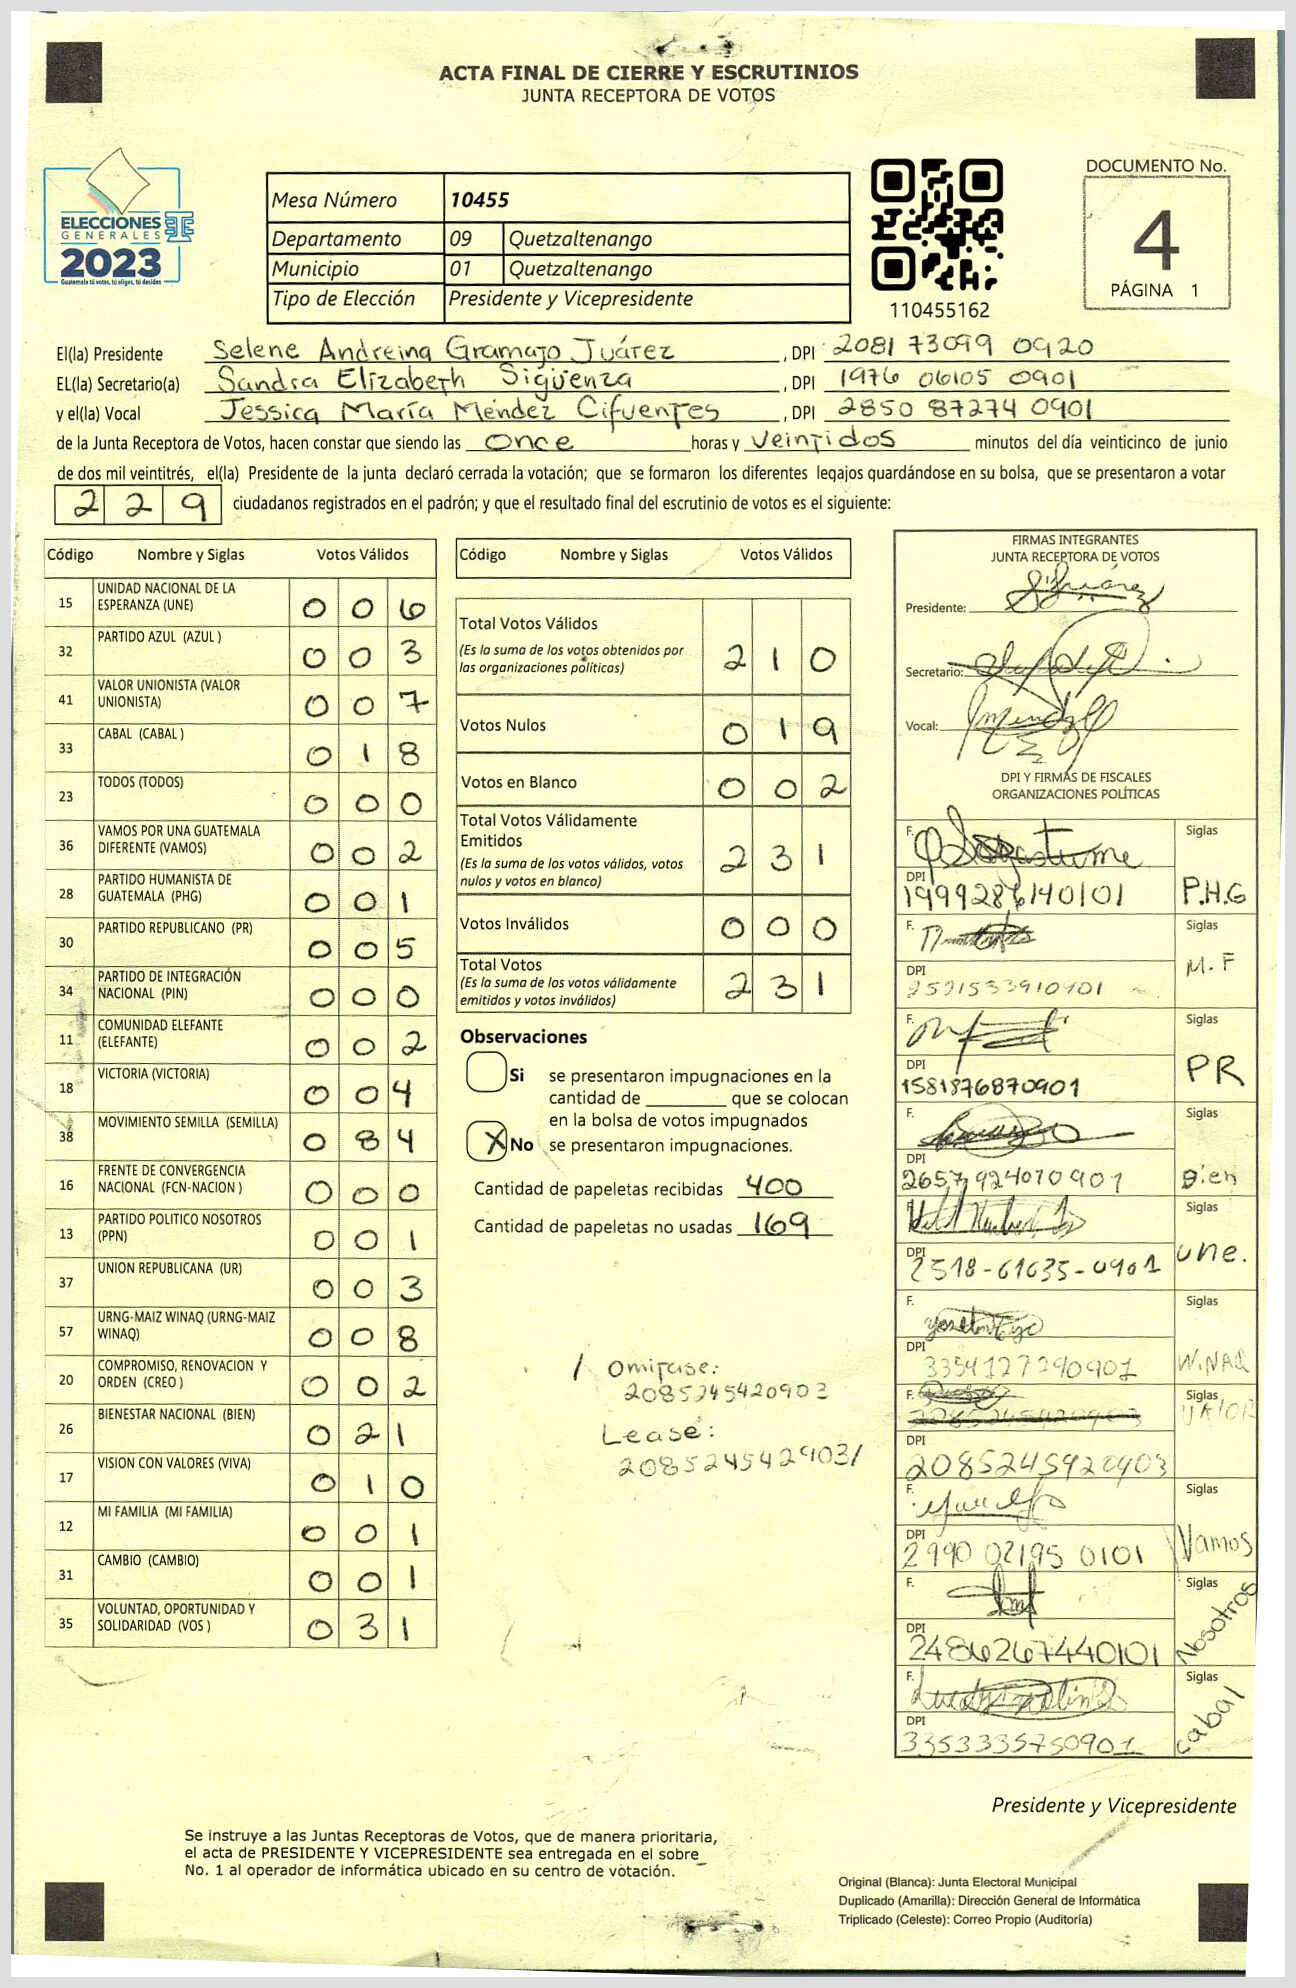 ACTA FINAL DE CIERRE Y ESCRUTINIOS
JUNTA RECEPTORA DE VOTOS
ELECCIONES
GENERALES
2023
Guatemala tú votas, tú eliges, tú decides
Mesa Número 10455
Departamento 09 Quetzaltenango
Municipio 01 Quetzaltenango
Tipo de Elección Presidente y Vicepresidente
110455162
DOCUMENTO No.
4
PÁGINA 1
El(la) Presidente Selene Andreina Gramajo Juárez , DPI 2081 73099 0920
EL(la) Secretario(a) Sandra Elizabeth Sigüenza , DPI 1976 06105 0901
y el(la) Vocal Jessica María Méndez Cifuentes , DPI 2850 87274 0901
de la Junta Receptora de Votos, hacen constar que siendo las once horas y veintidos minutos del día veinticinco de junio
de dos mil veintitrés, el(la) Presidente de la junta declaró cerrada la votación; que se formaron los diferentes legajos guardándose en su bolsa, que se presentaron a votar
229 ciudadanos registrados en el padrón; y que el resultado final del escrutinio de votos es el siguiente:
Código Nombre y Siglas Votos Válidos
15 UNIDAD NACIONAL DE LA ESPERANZA (UNE) 0 0 6
32 PARTIDO AZUL (AZUL ) 0 0 3
41 VALOR UNIONISTA (VALOR UNIONISTA) 0 0 7
33 CABAL (CABAL ) 0 1 8
23 TODOS (TODOS) 0 0 0
36 VAMOS POR UNA GUATEMALA DIFERENTE (VAMOS) 0 0 2
28 PARTIDO HUMANISTA DE GUATEMALA (PHG) 0 0 1
30 PARTIDO REPUBLICANO (PR) 0 0 5
34 PARTIDO DE INTEGRACIÓN NACIONAL (PIN) 0 0 0
11 COMUNIDAD ELEFANTE (ELEFANTE) 0 0 2
18 VICTORIA (VICTORIA) 0 0 4
38 MOVIMIENTO SEMILLA (SEMILLA) 0 84
16 FRENTE DE CONVERGENCIA NACIONAL (FCN-NACION ) 0 0 0
13 PARTIDO POLITICO NOSOTROS (PPN) 0 0 1
37 UNION REPUBLICANA (UR) 0 0 3
57 URNG-MAIZ WINAQ (URNG-MAIZ WINAQ) 0 0 8
20 COMPROMISO, RENOVACION Y ORDEN (CREO ) 0 0 2
26 BIENESTAR NACIONAL (BIEN) 0 2 1
17 VISION CON VALORES (VIVA) 0 1 0
12 MI FAMILIA (MI FAMILIA) 0 0 1
31 CAMBIO (CAMBIO) 0 0 1
35 VOLUNTAD, OPORTUNIDAD Y SOLIDARIDAD (VOS ) 0 3 1
Código Nombre y Siglas Votos Válidos
Total Votos Válidos 2 1 0
(Es la suma de los votos obtenidos por
las organizaciones políticas)
Votos Nulos 0 1 9
Votos en Blanco 0 0 2
Total Votos Válidamente
Emitidos 2 3 1
(Es la suma de los votos válidos, votos
nulos y votos en blanco)
Votos Inválidos 0 0 0
Total Votos 2 3 1
(Es la suma de los votos válidamente
emitidos y votos inválidos)
Observaciones
Si se presentaron impugnaciones en la
cantidad de ________ que se colocan
en la bolsa de votos impugnados
X No se presentaron impugnaciones.
Cantidad de papeletas recibidas 400
Cantidad de papeletas no usadas 169
/ Omitase:
2085245420903
Lease:
2085245429031
FIRMAS INTEGRANTES
JUNTA RECEPTORA DE VOTOS
Presidente:
Secretario:
Vocal:
DPI Y FIRMAS DE FISCALES
ORGANIZACIONES POLÍTICAS
F. Siglas
DPI
1999286140101 P.H.G
F. Siglas
DPI M.F
2521533910901
F. Siglas
DPI PR
1581876870901
F. Siglas
DPI
2657924070901 Bien
F. Siglas
DPI une.
2518-61635-0901
F. Siglas
DPI
3354127290901 WINAQ
F. Siglas
VALOR
DPI
2085245920903
F. Siglas
DPI Vamos
2990 02195 0101
F. Siglas
DPI Nosotros
2486267440101
F. Siglas
DPI cabal
3353335750901
Presidente y Vicepresidente
Se instruye a las Juntas Receptoras de Votos, que de manera prioritaria,
el acta de PRESIDENTE Y VICEPRESIDENTE sea entregada en el sobre
No. 1 al operador de informática ubicado en su centro de votación.
Original (Blanca): Junta Electoral Municipal
Duplicado (Amarilla): Dirección General de Informática
Triplicado (Celeste): Correo Propio (Auditoría)